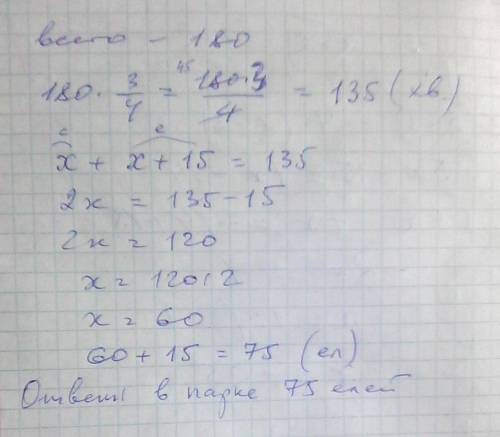 всего – 180
180 · 3/4 = 45 180·3/4 = 135 (хв.)
с е
x + x + 15 = 135
2x = 135 – 15
2x = 120
x = 120 : 2
x = 60
60 + 15 = 75 (ел)
Ответ: в парке 75 елей